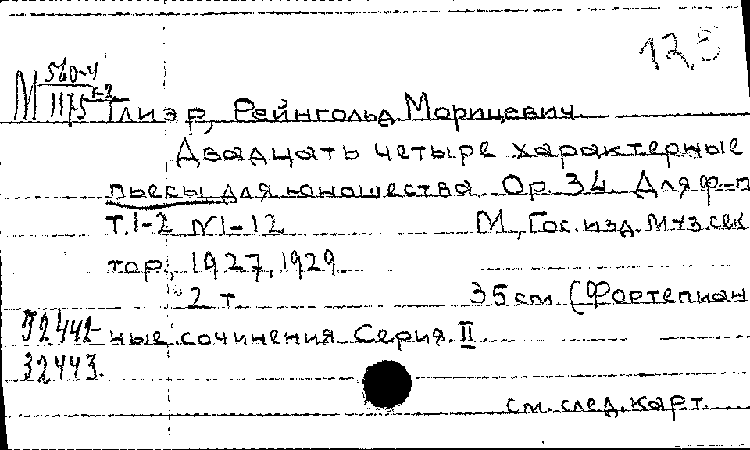 125
М 560-4
1175 1-2
Глиэр, Рейнгольд Морицевич.
Двадцать четыре характерные
пьесы для юношества. Op. 34. Для ф-п
Т. 1-2 №1-12 М., Гос. изд. Муз. сек
тор, 1927, 1929.
2 т. 35 см. (Фортепиан
ные сочинения. Серия II
32442-
32443.
см. след. карт.